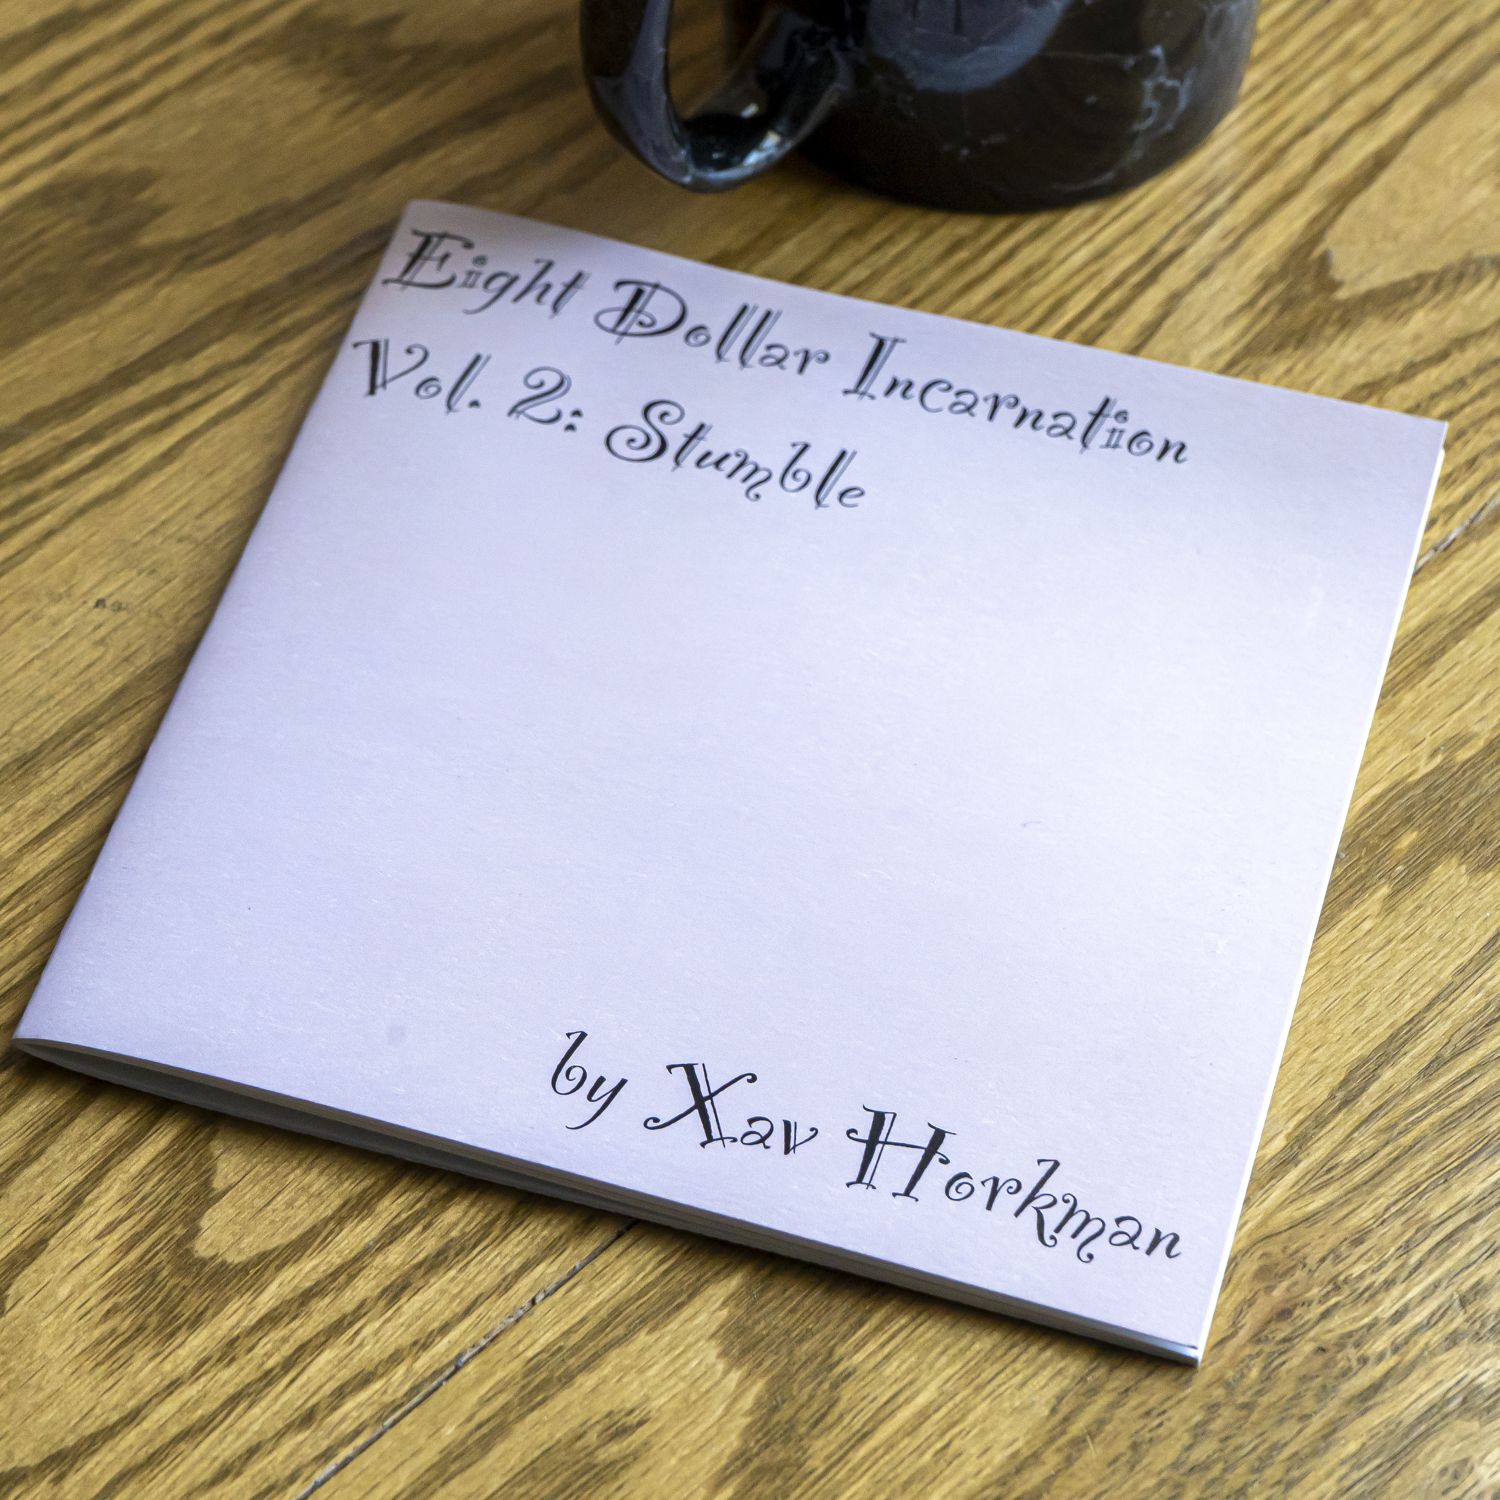 Eight Dollar Incarnation
Vol. 2: Stumble
by Xav Horkman